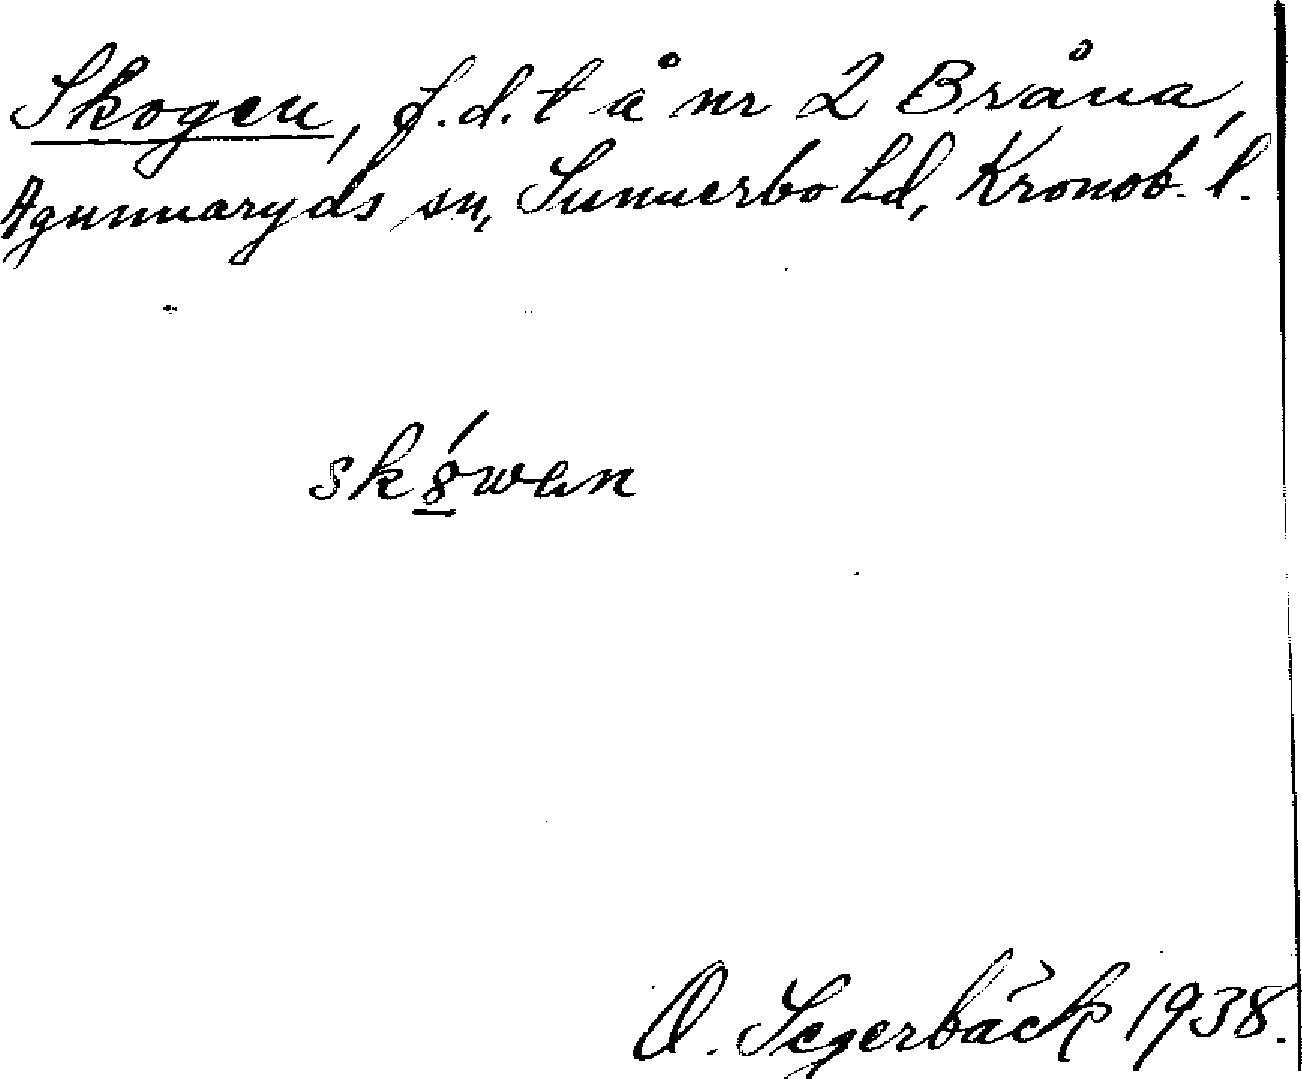 Skogen, f.d.t å nr 2 Bråna,
Agunnaryds sn, Sunnerbo hd, Kronob. l.
sk8́wen
O. Segerbäck 1938.